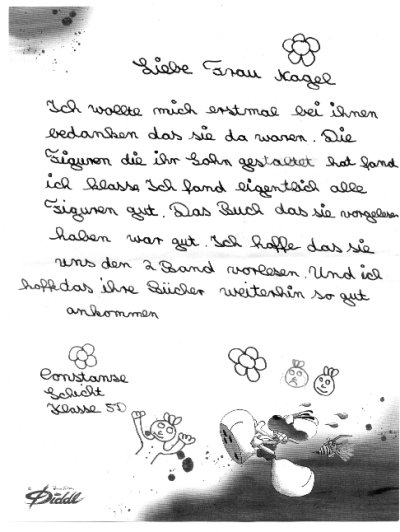 Liebe Frau Nagel
Ich wollte mich erstmal bei ihnen
bedanken das sie da waren. Die
Figuren die ihr Sohn gestaltet hat fand
ich klasse Ich fand eigentlich alle
Figuren gut. Das Buch das sie vorgelesen
haben war gut. Ich hoffe das sie
uns den 2 Band vorlesen. Und ich
hoffe das ihre Bücher weiterhin so gut
ankommen
Constanze
Schicht
Klasse 5D
Diddl